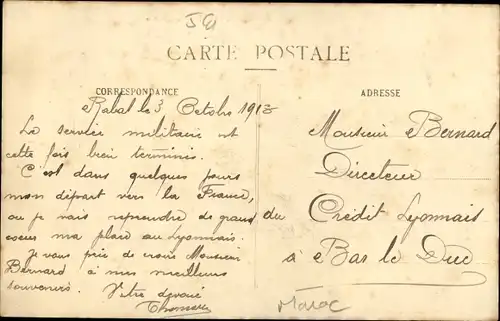 CARTE POSTALE
CORRESPONDANCE
ADRESSE
Rabat le 3 Octobre 1913
Le service militaire est
cette fois bien terminé.
C'est dans quelques jours
mon départ vers la France,
ou je vais reprendre de grand
coeur ma place au Lyonnais.
Je vous prie de croire Monsieur
Bernard à mes meilleurs
souvenirs. Votre dévoué
Monsieur Bernard
Directeur
du Crédit Lyonnais
à Bar le Duc
Maroc